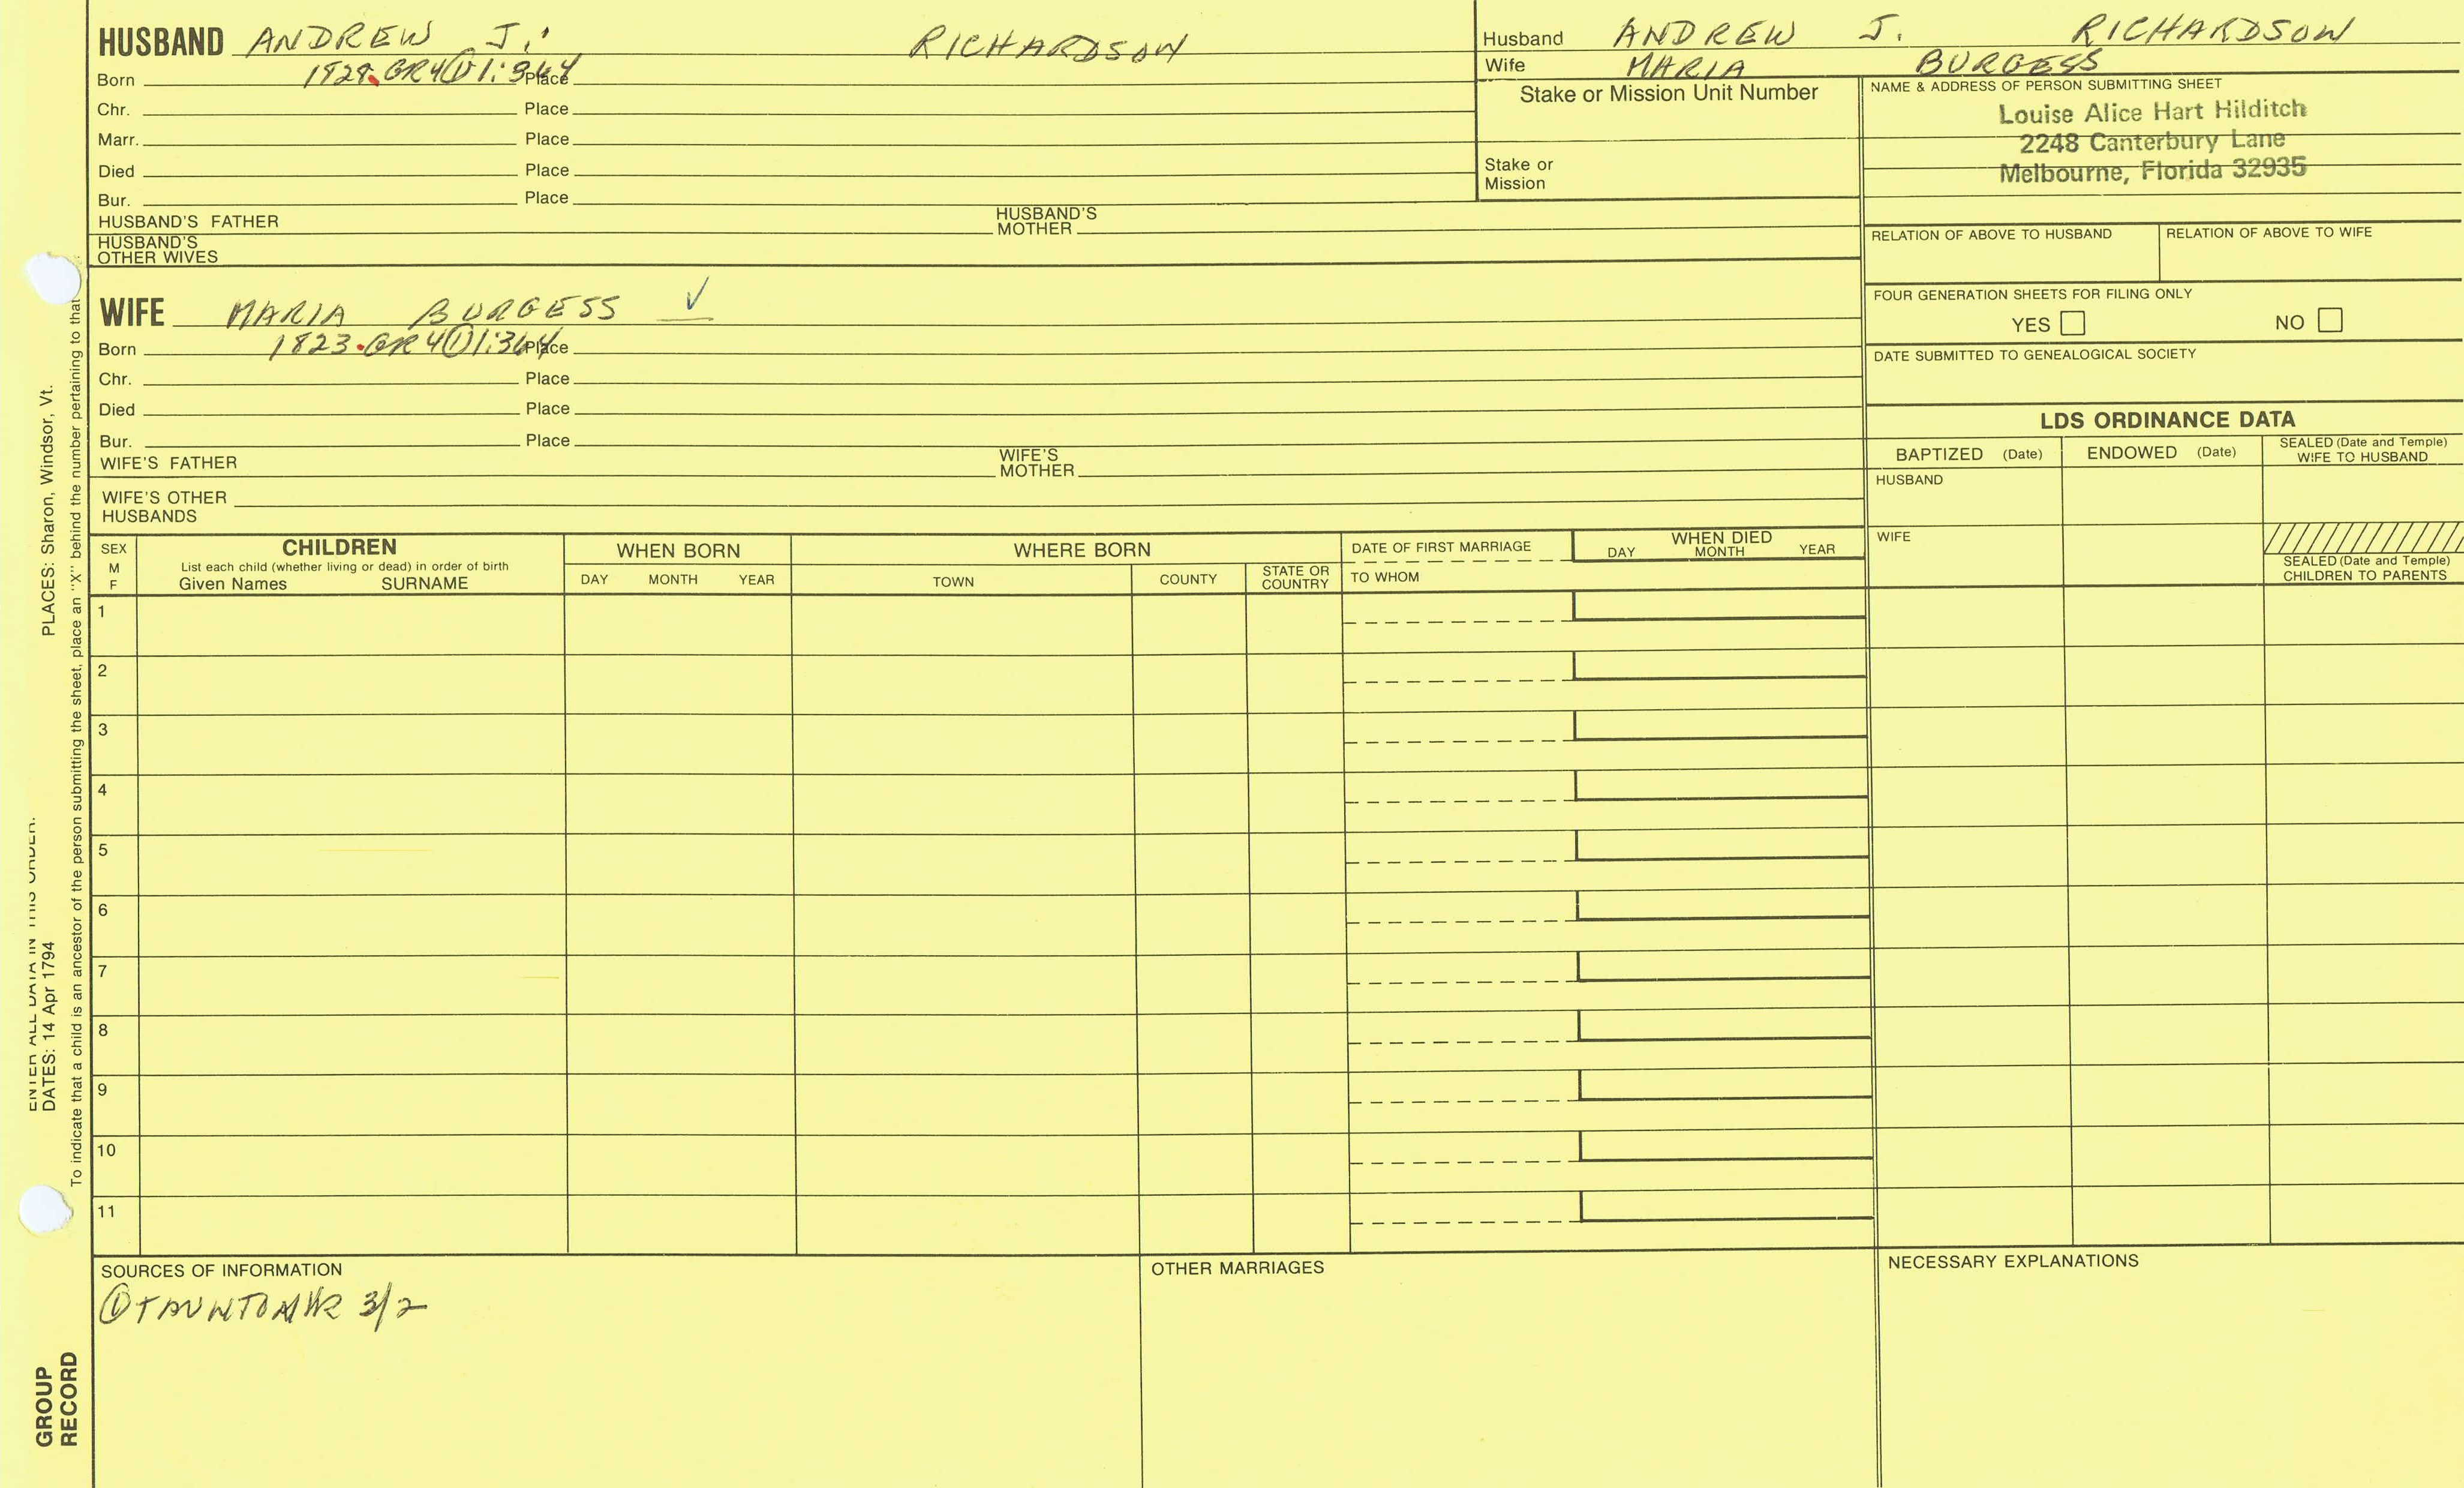 HUSBAND ANDREW J. RICHARDSON
Born 1828. GR4①1:364 Place
Chr. Place
Marr. Place
Died Place
Bur. Place
HUSBAND'S FATHER HUSBAND'S MOTHER
HUSBAND'S OTHER WIVES
Husband ANDREW J. RICHARDSON
Wife MARIA BURGESS
Stake or Mission Unit Number
Stake or Mission
NAME & ADDRESS OF PERSON SUBMITTING SHEET
Louise Alice Hart Hilditch
2248 Canterbury Lane
Melbourne, Florida 32935
RELATION OF ABOVE TO HUSBAND RELATION OF ABOVE TO WIFE
FOUR GENERATION SHEETS FOR FILING ONLY
YES NO
DATE SUBMITTED TO GENEALOGICAL SOCIETY
WIFE MARIA BURGESS ✓
Born 1823. GR4①1:364 Place
Chr. Place
Died Place
Bur. Place
WIFE'S FATHER WIFE'S MOTHER
WIFE'S OTHER HUSBANDS
LDS ORDINANCE DATA
BAPTIZED (Date) ENDOWED (Date) SEALED (Date and Temple) WIFE TO HUSBAND
HUSBAND
WIFE
SEALED (Date and Temple) CHILDREN TO PARENTS
SEX M F
CHILDREN
List each child (whether living or dead) in order of birth
Given Names SURNAME
WHEN BORN
DAY MONTH YEAR
WHERE BORN
TOWN COUNTY STATE OR COUNTRY
DATE OF FIRST MARRIAGE
TO WHOM
WHEN DIED
DAY MONTH YEAR
1
2
3
4
5
6
7
8
9
10
11
SOURCES OF INFORMATION
①TAUNTON VR 3/2
OTHER MARRIAGES
NECESSARY EXPLANATIONS
PLACES: Sharon, Windsor, Vt.
ENTER ALL DATA IN THIS ORDER:
DATES: 14 Apr 1794
To indicate that a child is an ancestor of the person submitting the sheet, place an "X" behind the number pertaining to that
GROUP
RECORD